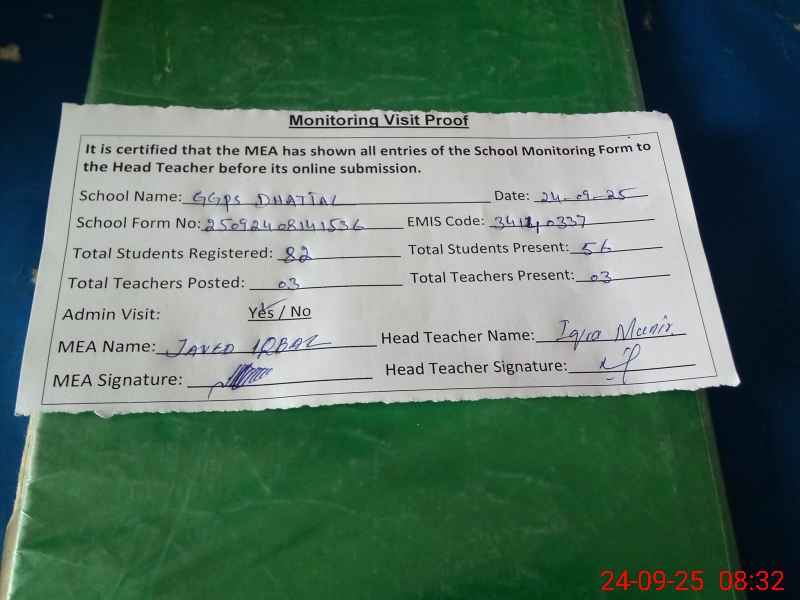 Monitoring Visit Proof
It is certified that the MEA has shown all entries of the School Monitoring Form to
the Head Teacher before its online submission.
School Name: GGPS DHATIAL Date: 24-09-25
School Form No: 25092408141536 EMIS Code: 34140337
Total Students Registered: 82 Total Students Present: 56
Total Teachers Posted: 03 Total Teachers Present: 03
Admin Visit: Yes / No
MEA Name: JAVED IQBAL Head Teacher Name: Iqra Munir
MEA Signature: Head Teacher Signature:
24-09-25 08:32